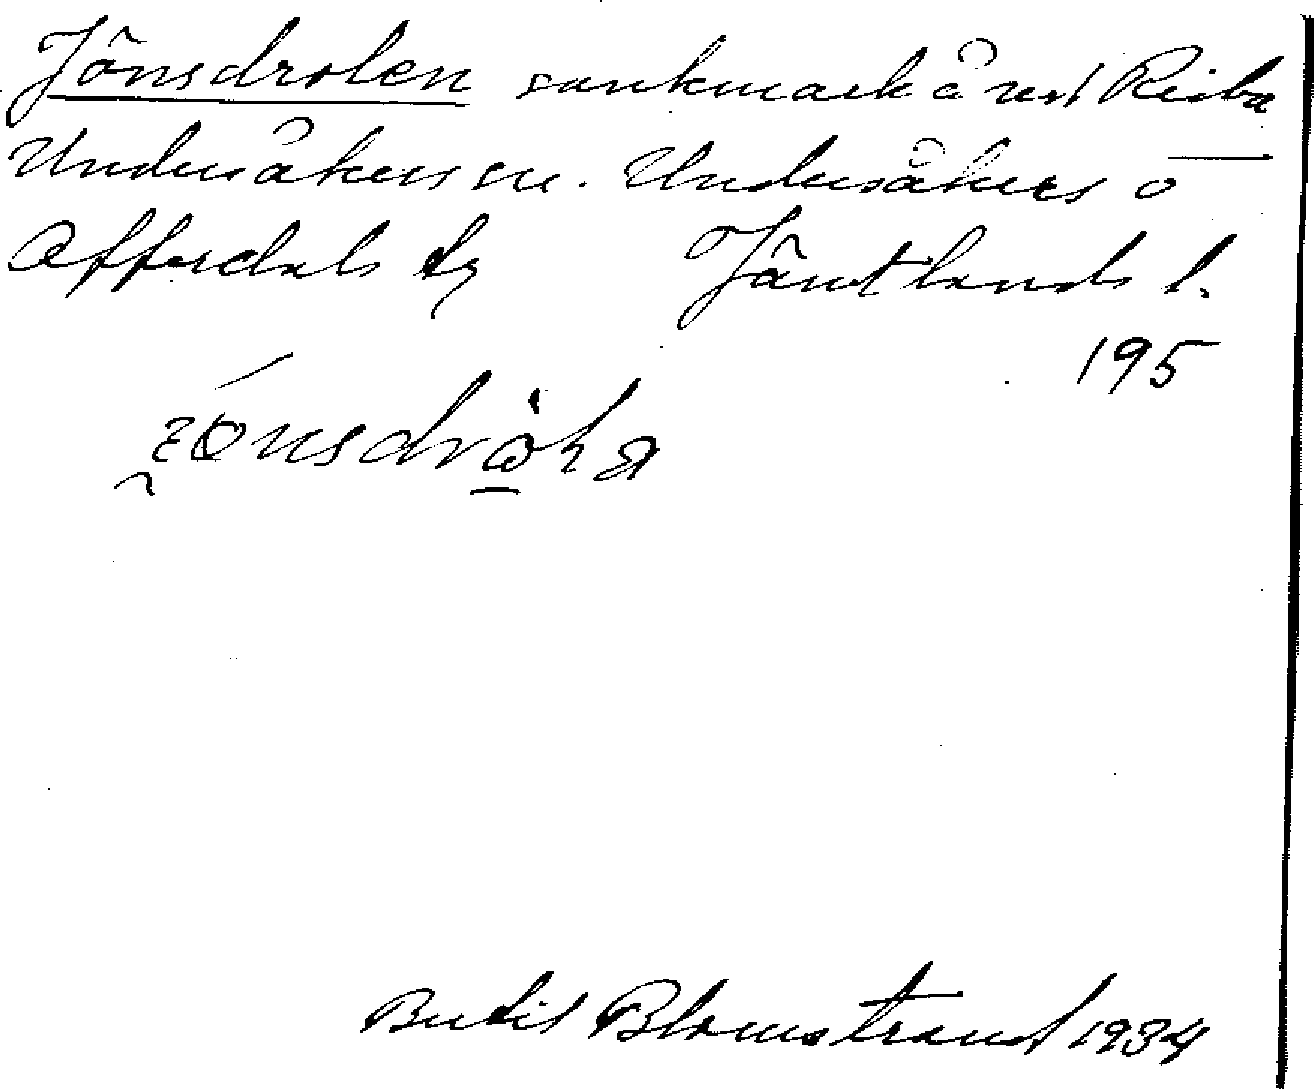 Jönsdrolen sankmark å vest
Undersåkers sn. Undersåkers o
Offerdals tg Jämtlands l.
195
Bertil Blomstrand 1934